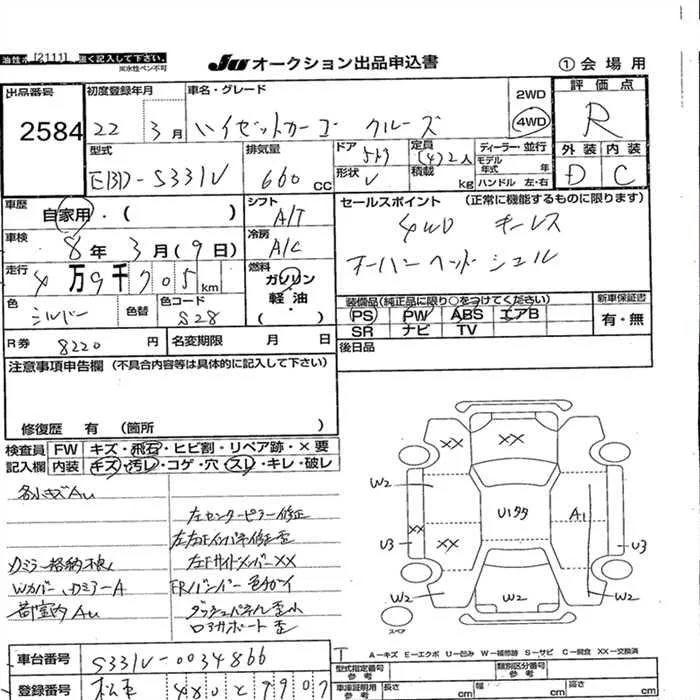 油性ボ [2111] 強く記入して下さい。
※水性ペン不可
JU オークション出品申込書
①会場用
出品番号 2584
初度登録年月 22年 3月
車名・グレード ハイゼットカーゴ クルーズ
2WD
4WD
評価点 R
外装 内装
D C
型式 EBD-S331V
排気量 660 CC
ドア 5ドア
形状 V
定員 (4)2人
積載 kg
ディーラー・並行
モデル年式 年
ハンドル 左・右
車歴 自家用・( )
シフト A/T
セールスポイント (正常に機能するものに限ります)
4WD キーレス
オーバーヘッドシェル
車検 8年 3月(9日)
冷房 A/C
走行 4万9千705km
燃料 ガソリン
軽油・( )
色 シルバー
色替
色コード S28
装備品(純正品に限り○をつけてください)
PS PW ABS エアB
SR ナビ TV
新車保証書
有・無
R券 8220円
名変期限 月 日
後日品
注意事項申告欄 (不具合内容等は具体的に記入して下さい)
修復歴 有 (箇所 )
検査員記入欄
FW キズ・飛石・ヒビ割・リペア跡・×要
内装 キズ・汚レ・コゲ・穴・スレ・キレ・破レ
各小キズAu
左センターピラー修正
左右Fインパネ修正歪
ドミラー格納不良
左FサイドメンバーXX
Wカバー、ドミラーA
FRバンパー色ハゲ
荷室内Au
ダッシュパネル歪小
ロアサポート歪
XX XX
W2
U1タタ A1
XX XX
U3 U3
W2 W2 W2
スペア
A-キズ E-エクボ U-凹み W-補修跡 S-サビ C-腐食 XX-交換済
車台番号 S331V-0034866
登録番号 松本 480 と 9907
型式指定番号
類別区分番号
車庫証明用参考 長さ cm 幅 cm 高さ cm